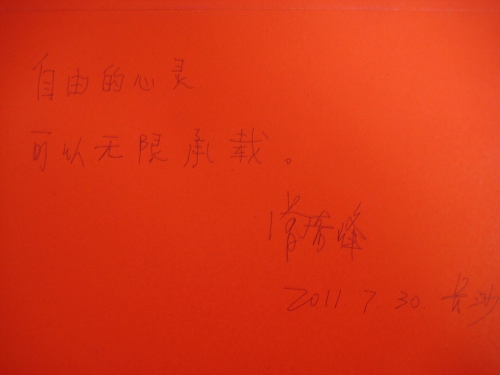 自由的心灵
可以无限承载。
2011 7. 30. 长沙